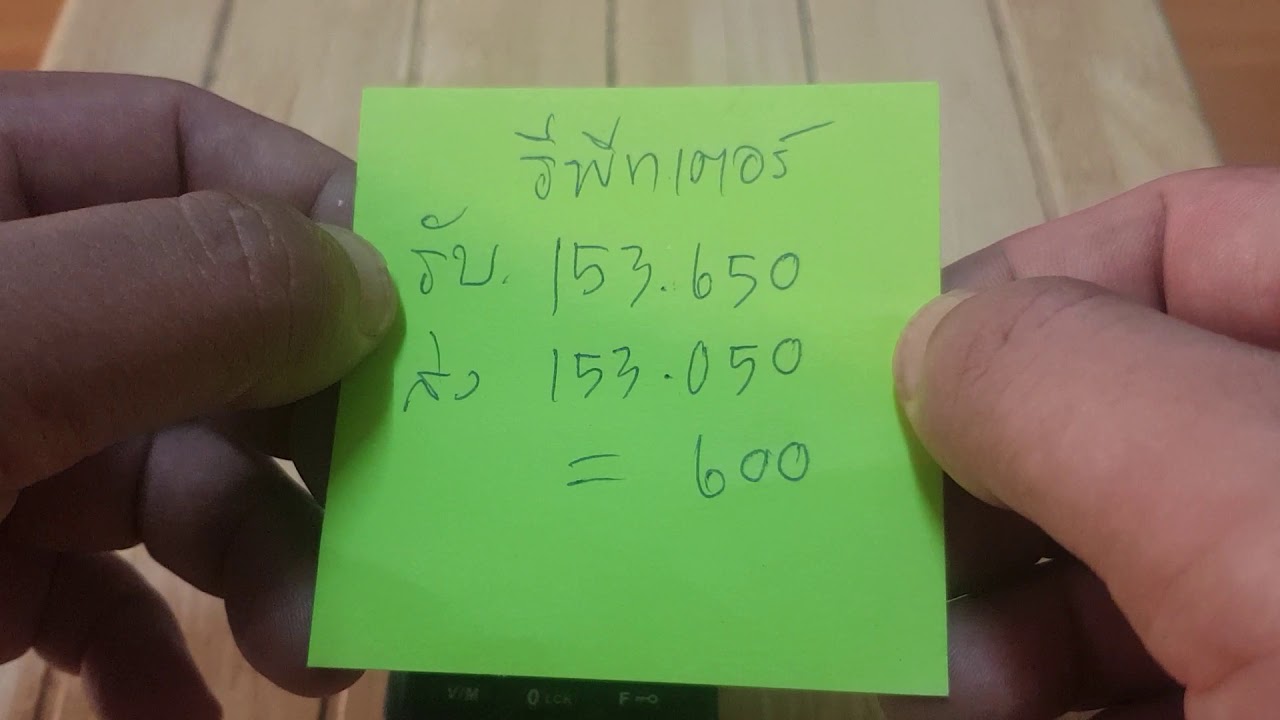 รีพีทเตอร์
รับ. 153.650
ส่ง 153.050
= 600
V/M 0 LCK F